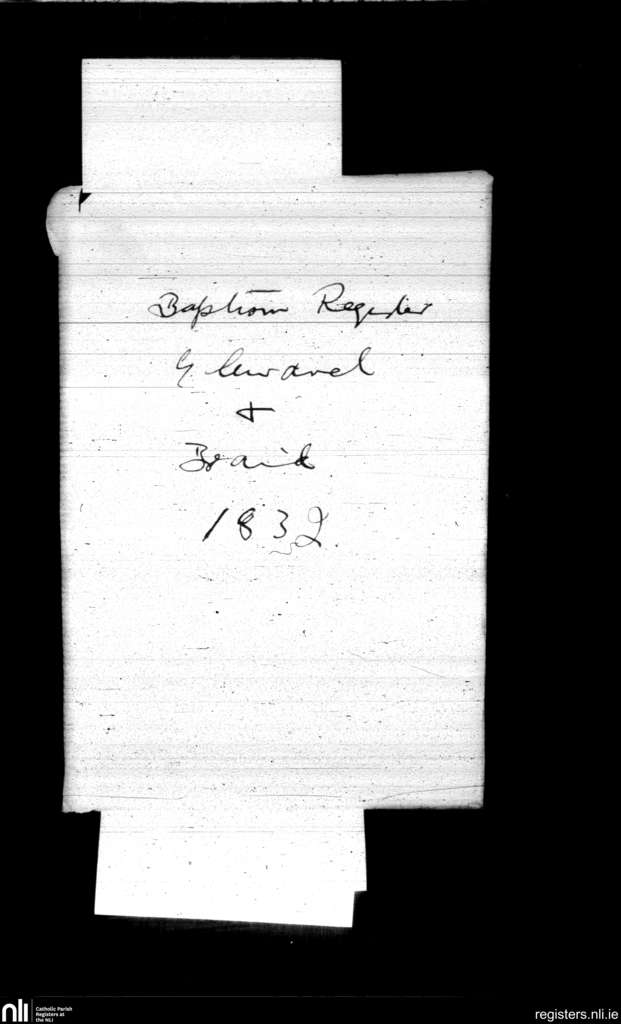 Baptism Register
Glenravel
+
Braid
1832
nli
Catholic Parish
Registers at
the NLI
registers.nli.ie